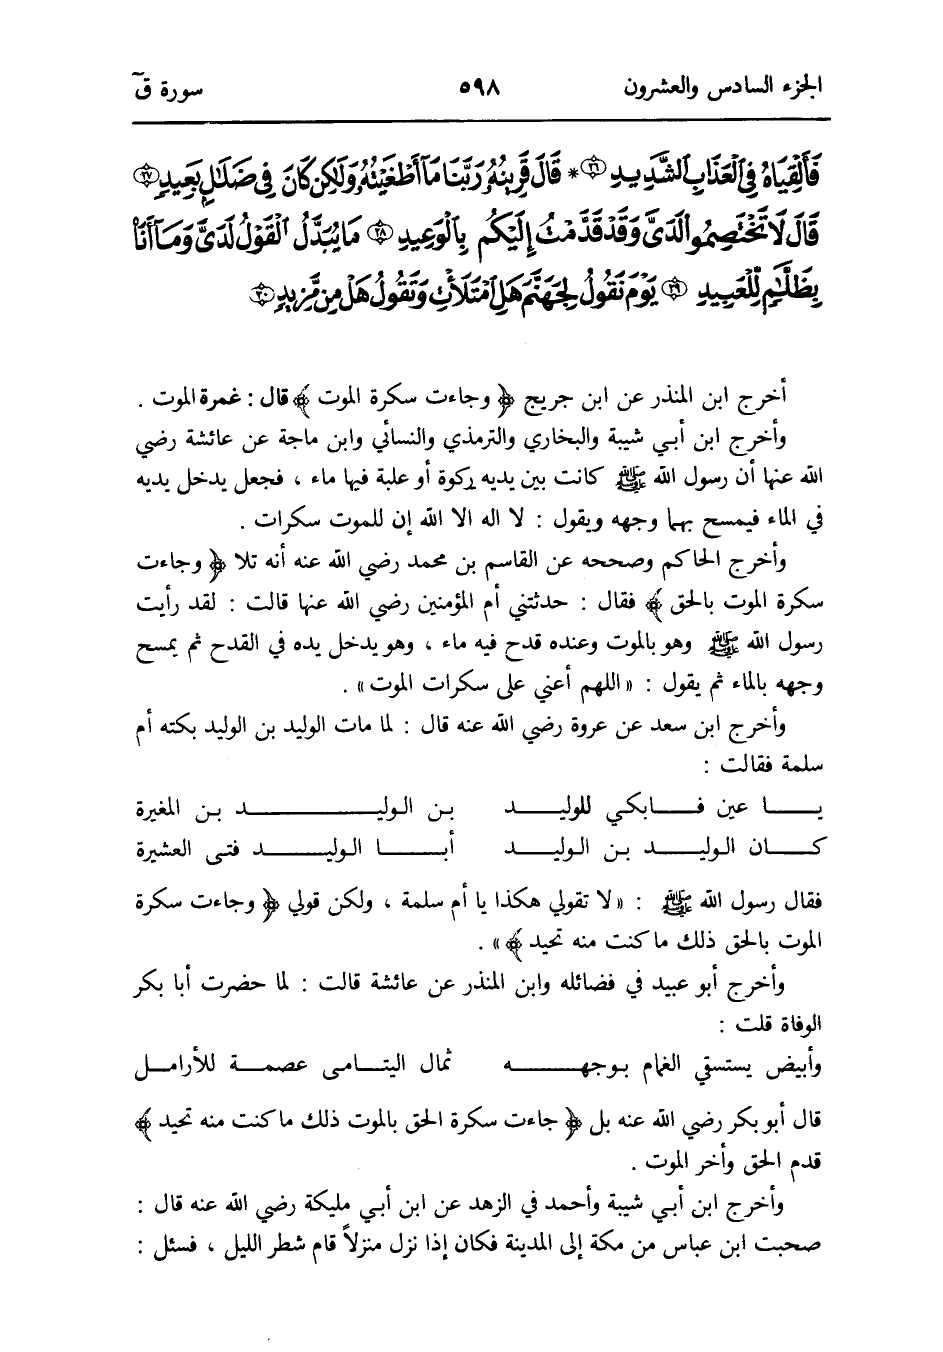 الجزء السادس والعشرون ٥٩٨ سورة قٓ
فَأَلْقِيَاهُ فِي الْعَذَابِ الشَّدِيدِ ﴿٢٦﴾ * قَالَ قَرِينُهُ رَبَّنَا مَا أَطْغَيْتُهُ وَلَٰكِن كَانَ فِي ضَلَالٍ بَعِيدٍ ﴿٢٧﴾
قَالَ لَا تَخْتَصِمُوا لَدَيَّ وَقَدْ قَدَّمْتُ إِلَيْكُم بِالْوَعِيدِ ﴿٢٨﴾ مَا يُبَدَّلُ الْقَوْلُ لَدَيَّ وَمَا أَنَا۠
بِظَلَّامٍ لِّلْعَبِيدِ ﴿٢٩﴾ يَوْمَ نَقُولُ لِجَهَنَّمَ هَلِ امْتَلَأْتِ وَتَقُولُ هَلْ مِن مَّزِيدٍ ﴿٣٠﴾
أخرج ابن المنذر عن ابن جريج ﴿ وجاءت سكرة الموت ﴾ قال : غمرة الموت .
وأخرج ابن أبي شيبة والبخاري والترمذي والنسائي وابن ماجة عن عائشة رضي
الله عنها أن رسول الله ﷺ كانت بين يديه ركوة أو علبة فيها ماء ، فجعل يدخل يديه
في الماء فيمسح بهما وجهه ويقول : لا اله الا الله إن للموت سكرات .
وأخرج الحاكم وصححه عن القاسم بن محمد رضي الله عنه أنه تلا ﴿ وجاءت
سكرة الموت بالحق ﴾ فقال : حدثتني أم المؤمنين رضي الله عنها قالت : لقد رأيت
رسول الله ﷺ وهو بالموت وعنده قدح فيه ماء ، وهو يدخل يده في القدح ثم يمسح
وجهه بالماء ثم يقول : «اللهم أعني على سكرات الموت» .
وأخرج ابن سعد عن عروة رضي الله عنه قال : لما مات الوليد بن الوليد بكته أم
سلمة فقالت :
يا عين فابكي للوليد بن الوليد بن المغيرة
كان الوليد بن الوليد أبا الوليد فتى العشيرة
فقال رسول الله ﷺ : «لا تقولي هكذا يا أم سلمة ، ولكن قولي ﴿ وجاءت سكرة
الموت بالحق ذلك ما كنت منه تحيد ﴾» .
وأخرج أبو عبيد في فضائله وابن المنذر عن عائشة قالت : لما حضرت أبا بكر
الوفاة قلت :
وأبيض يستسقي الغمام بوجهه ثمال اليتامى عصمة للأرامل
قال أبو بكر رضي الله عنه بل ﴿ جاءت سكرة الحق بالموت ذلك ما كنت منه تحيد ﴾
قدم الحق وأخر الموت .
وأخرج ابن أبي شيبة وأحمد في الزهد عن ابن أبي مليكة رضي الله عنه قال :
صحبت ابن عباس من مكة إلى المدينة فكان إذا نزل منزلاً قام شطر الليل ، فسئل :